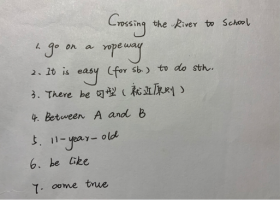 Crossing the River to School
1. go on a ropeway
2. It is easy (for sb.) to do sth.
3. There be 句型 (就近原则)
4. Between A and B
5. 11-year-old
6. be like
7. come true